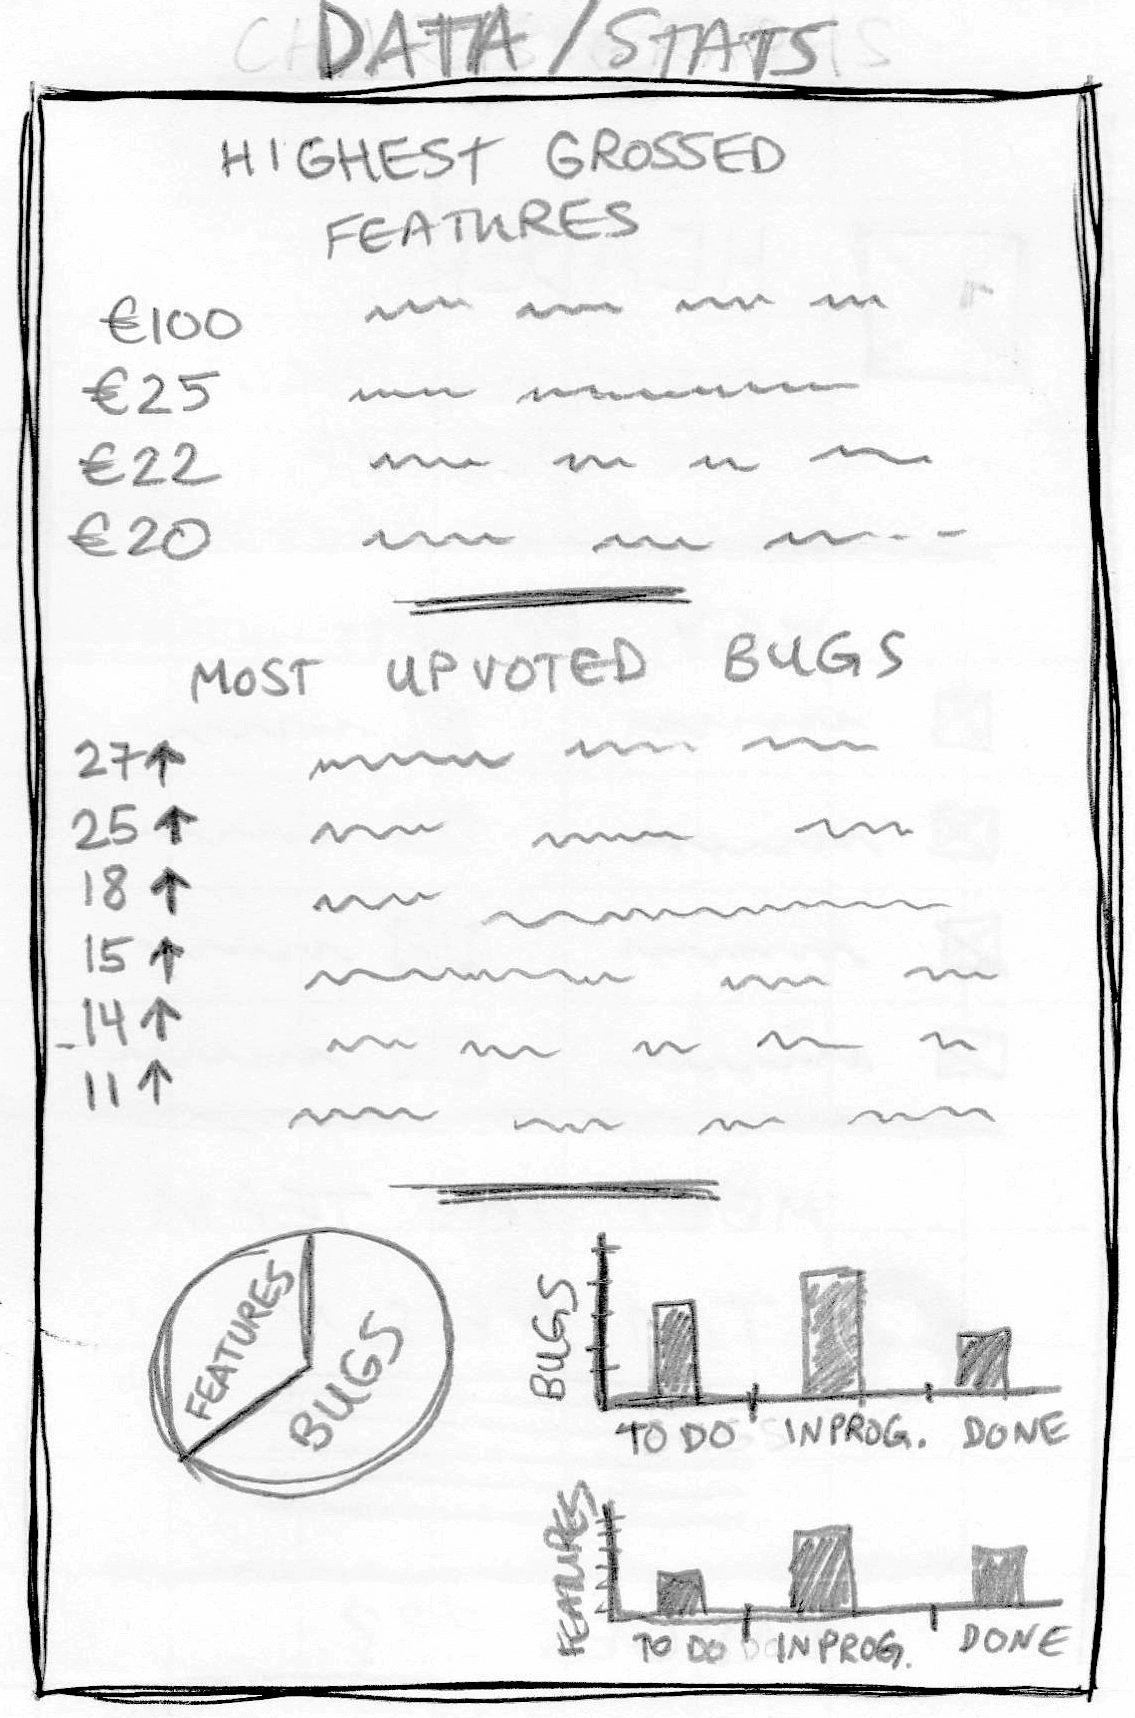 DATA/STATS
HIGHEST GROSSED
FEATURES
€100
€25
€22
€20
MOST UPVOTED BUGS
27↑
25↑
18↑
15↑
14↑
11↑
FEATURES
BUGS
BUGS
TO DO INPROG. DONE
FEATURES
TO DO INPROG. DONE